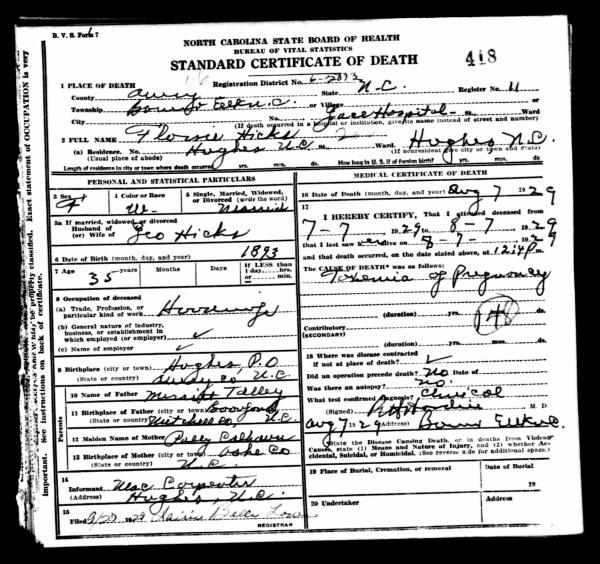 B. V. S. Form 7
NORTH CAROLINA STATE BOARD OF HEALTH
BUREAU OF VITAL STATISTICS
STANDARD CERTIFICATE OF DEATH
418
1 PLACE OF DEATH
Registration District No. 6-2813
Register No. 11
County Avery State N.C.
Township Banner Elk N.C. or Village
City No. Grace Hospital St., Ward
(If death occurred in a hospital or institution, give its name instead of street and number)
2 FULL NAME Florse Hicks
(a) Residence. No. Hughes N.C. St., Ward. Hughes N.C.
(Usual place of abode) (If nonresident give city or town and State)
Length of residence in city or town where death occurred yrs. mos. ds. How long in U. S. if of foreign birth? yrs. mos. ds.
PERSONAL AND STATISTICAL PARTICULARS
3 Sex F 4 Color or Race W 5 Single, Married, Widowed, or Divorced (write the word) Married
5a If married, widowed or divorced
Husband of
(or) Wife of Geo Hicks
6 Date of Birth (month, day, and year) 1893
7 Age 35 years Months Days If LESS than 1 day, hrs. or min.
8 Occupation of deceased
(a) Trade, Profession, or particular kind of work Housewife
(b) General nature of industry, business, or establishment in which employed (or employer)
(c) Name of employer
9 Birthplace (city or town) Hughes P.O
(State or country) Avery Co N.C
10 Name of Father Talley
11 Birthplace of Father (city or town)
(State or country) Mitchell Co, N.C
12 Maiden Name of Mother Polly Calhoun
13 Birthplace of Mother (city or town) Ashe Co
(State or country) N.C.
Parents
14 Informant Mac Carpenter
(Address) Hughes, N.C.
15 Filed 9/27 1929
REGISTRAR
MEDICAL CERTIFICATE OF DEATH
16 Date of Death (month, day, and year) Aug 7 1929
17 I HEREBY CERTIFY, That I attended deceased from
7-7, 1929 to 8-7-, 1929
that I last saw her alive on 8-7-, 1929
and that death occurred, on the date stated above, at
The CAUSE OF DEATH* was as follows:
Toxemia of Pregnancy
(duration) yrs. mos. ds.
Contributory
(SECONDARY)
(duration) yrs. mos. ds.
18 Where was disease contracted
if not at place of death?
Did an operation precede death? No Date of
Was there an autopsy? No.
What test confirmed diagnosis? Clinical
(Signed) M. D.
Aug 7 1929 (Address) Banner Elk N.C.
*State the Disease Causing Death, or in deaths from Violent Causes, state (1) Means and Nature of Injury, and (2) whether Accidental, Suicidal, or Homicidal. (See reverse side for additional space.)
19 Place of Burial, Cremation, or removal Date of Burial
19
20 Undertaker Address
Important. See instructions on back of certificate.
Exact statement of OCCUPATION is very